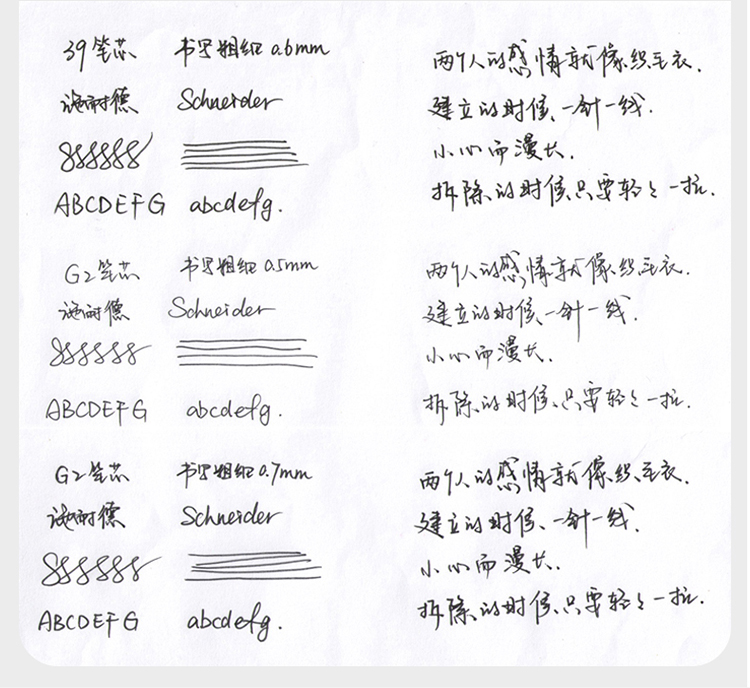 39笔芯 书写粗细 0.6mm
施耐德 Schneider
ABCDEFG abcdefg.
两个人的感情就像织毛衣.
建立的时候、一针一线.
小心而漫长.
拆除的时候、只要轻轻一拉.
G2笔芯 书写粗细 0.5mm
施耐德 Schneider
ABCDEFG abcdefg.
两个人的感情就像织毛衣.
建立的时候、一针一线.
小心而漫长.
拆除的时候、只要轻轻一拉.
G2笔芯 书写粗细 0.7mm
施耐德 Schneider
ABCDEFG abcdefg.
两个人的感情就像织毛衣.
建立的时候、一针一线.
小心而漫长.
拆除的时候、只要轻轻一拉.